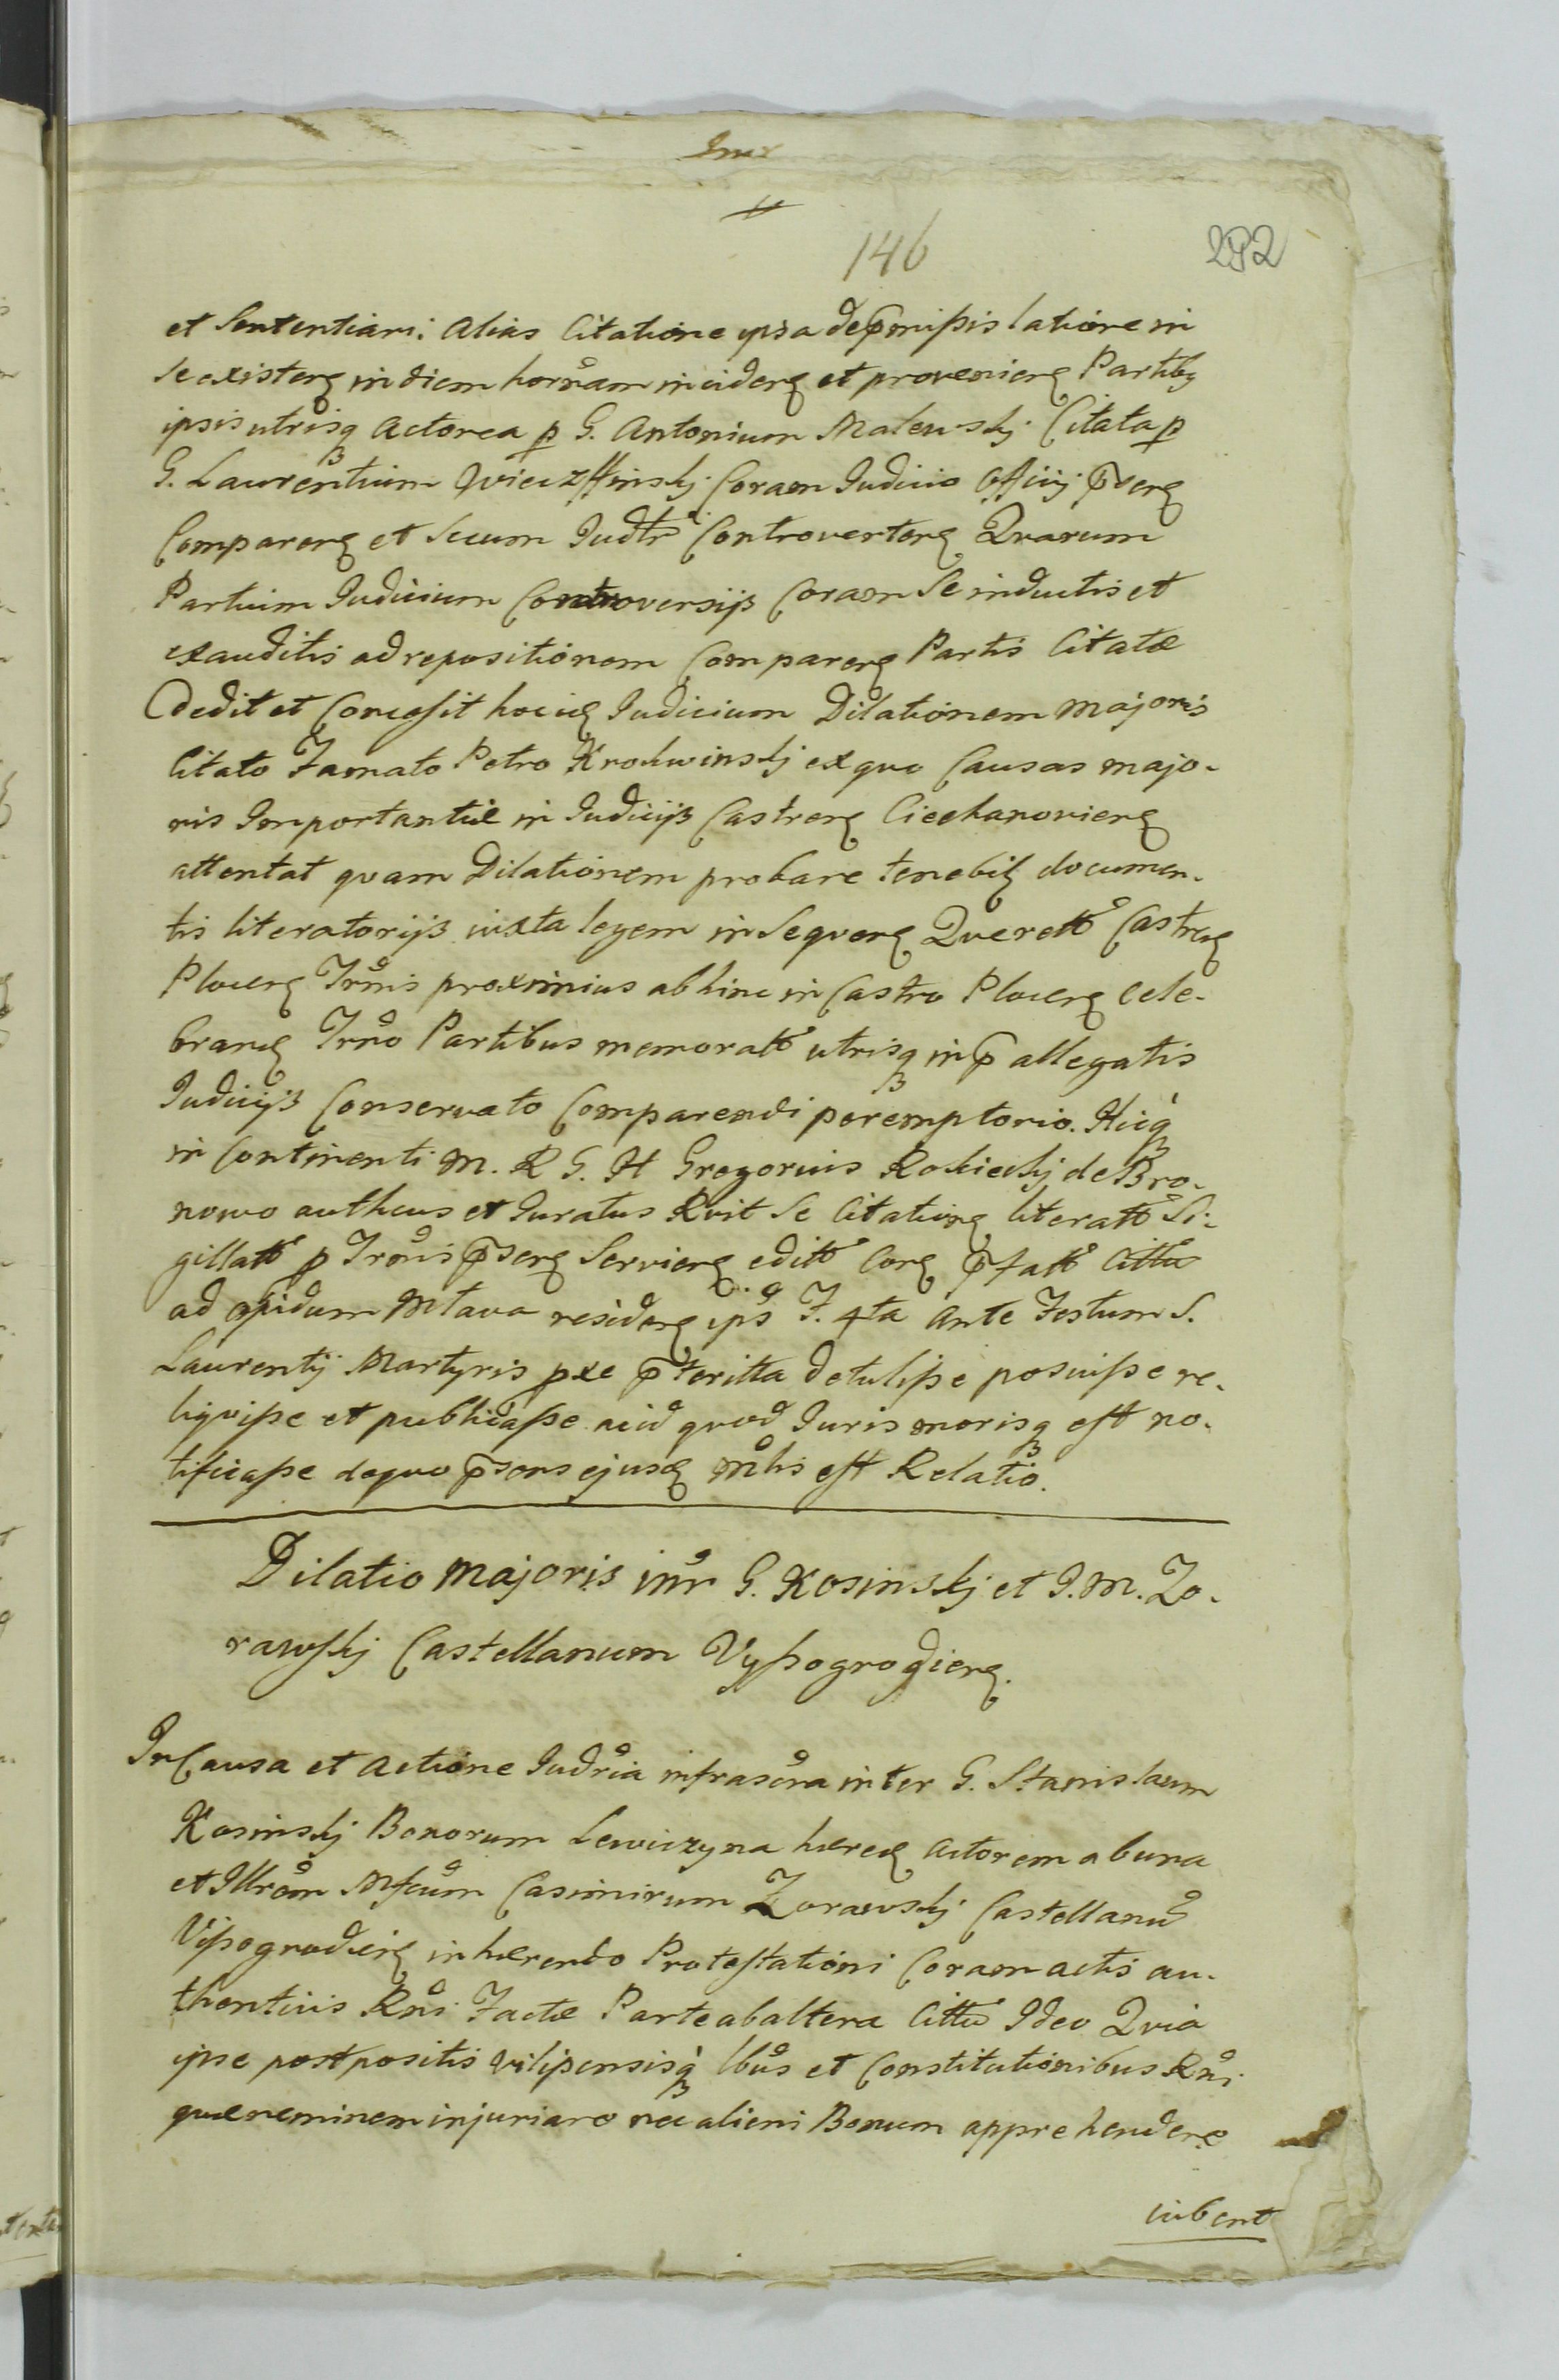 146
292
et Sententiari: Alias Citatione ipsa de p̄missis latiore in
se existen̄ in diem hornam inciden̄ et provenien̄ Partibꝫ
ipsis utrisqꝫ Actorea p G. Antonium Malewskj Citata p
G. Laurentium Coram Judicio Officij p̄sen̄
Comparen̄ et secum Judtr Controverten̄ Quarum
Partium Judicium Controversijs Coram Se inductis et
exauditis ad repositionem Comparen̄ Partis Citatæ
Dedit et Concessit hocce Judicium Dilationem majoris
Citato Famato Petro Krokwinskj ex quo Causas majo-
ris Importantiæ in Judicijs Castren̄ Ciechanovien̄
attentat quam Dilationem probare tenebit documen-
tis literatorijs iuxta legem in Sequen̄ Querell Castren̄
Plocen̄ Trmis proximius abhinc in Castro Plocen̄ cele-
bran̄ Trno Partibus memoratt utrisqꝫ in p̄ allegatis
Judicijs Conservato Comparendi peremptorio. Hicqꝫ
in Continenti M. R G. H Gregorius Rokickj de Bro-
nowo authcus et Juratus Rvit Se Citation̄ literatt Si-
gillatt p Trmis p̄sen̄ Servien̄ editt Con̄ p̄fatt Cittu
ad opidum Mlava residen̄ ips F. 4ta Ante Festum S.
Laurentij Martyris pxe p̄teritta detulisse posuisse re-
liquisse et publicasse acid quod Juris morisqꝫ est no-
tificasse de quo p̄sens ejusd Mlis est Relatio.
Dilatio majoris intr G. Kosinskj et J. M. Zo-
rawskj Castellanum Vyssogrodien̄.
In Causa et Actione Judria infrascra inter G. Stanislaum
Kosinskj Bonorum Lewiczyna hæred Actorem ab una
et Illrem Mfcum Casimirum Zorawskj Castellanu
Vissogrodien̄ inhærendo Protestationi Coram actis au-
thenticis Rni Factæ Parte ab altera Cittu Ideo Quia
ipse postpositis vilipensisqꝫ lbus et Constitutionibus Rni
quæ neminem injuriare nec alieni Bonum apprehendere
iubent